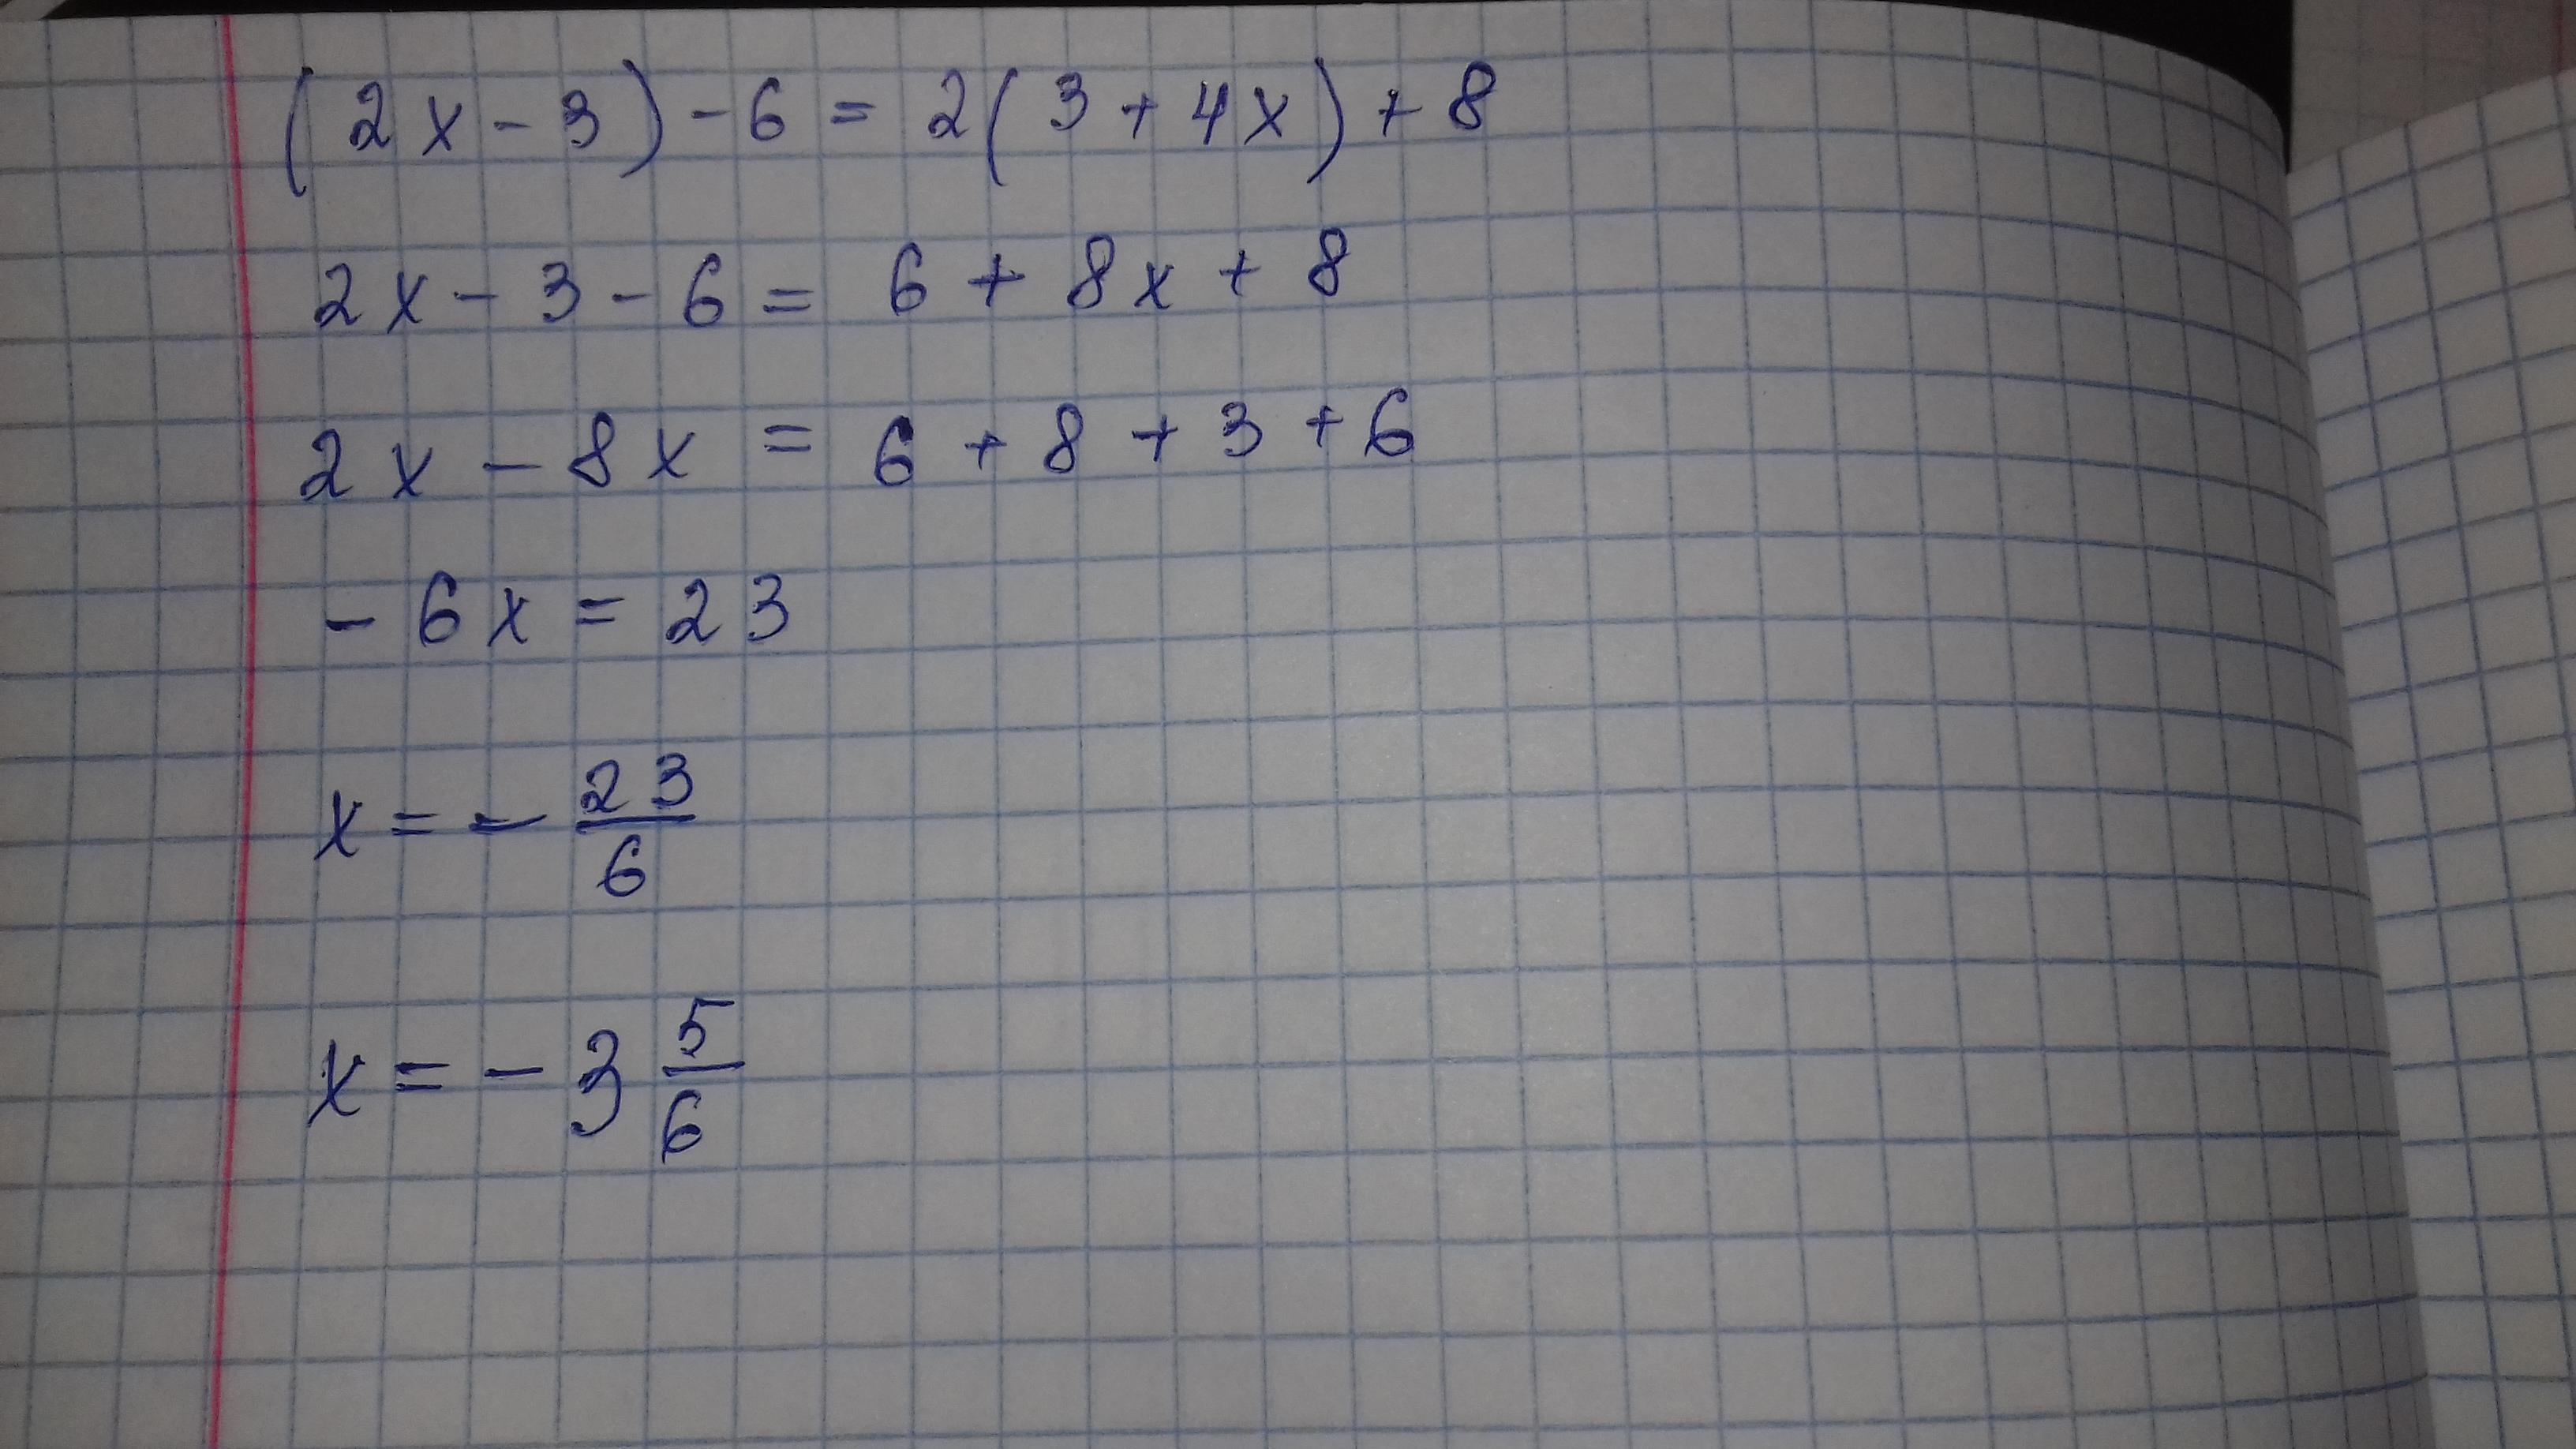 (2x - 3) - 6 = 2(3 + 4x) + 8
2x - 3 - 6 = 6 + 8x + 8
2x - 8x = 6 + 8 + 3 + 6
- 6x = 23
x = - 23/6
x = - 3 5/6